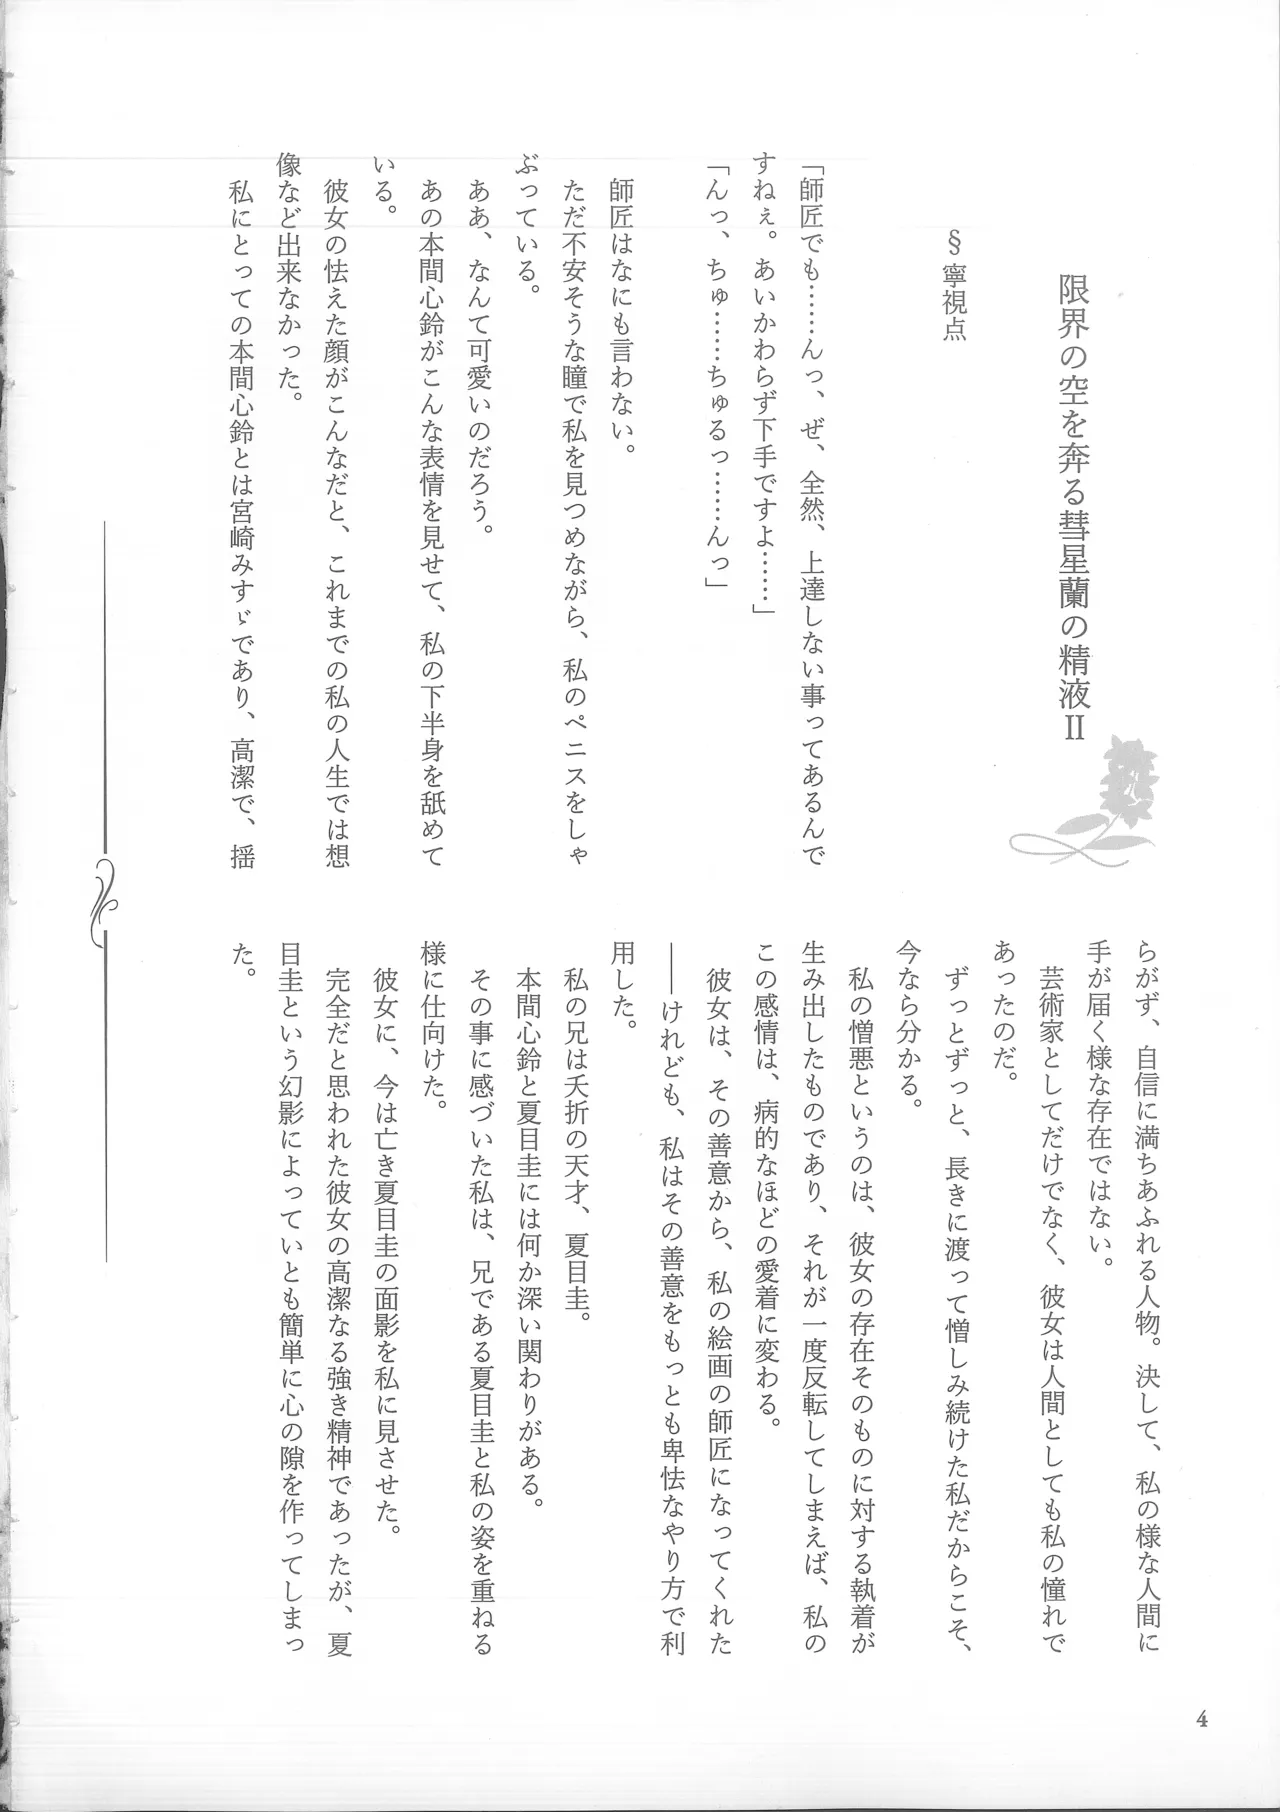 限界の空を奔る彗星蘭の精液Ⅱ
§寧視点
「師匠でも……んっ、ぜ、全然、上達しない事ってあるんで
すねぇ。あいかわらず下手ですよ……」
「んっ、ちゅ……ちゅるっ……んっ」
師匠はなにも言わない。
ただ不安そうな瞳で私を見つめながら、私のペニスをしゃ
ぶっている。
ああ、なんて可愛いのだろう。
あの本間心鈴がこんな表情を見せて、私の下半身を舐めて
いる。
彼女の怯えた顔がこんなだと、これまでの私の人生では想
像など出来なかった。
私にとっての本間心鈴とは宮崎みすゞであり、高潔で、揺
らがず、自信に満ちあふれる人物。決して、私の様な人間に
手が届く様な存在ではない。
芸術家としてだけでなく、彼女は人間としても私の憧れで
あったのだ。
ずっとずっと、長きに渡って憎しみ続けた私だからこそ、
今なら分かる。
私の憎悪というのは、彼女の存在そのものに対する執着が
生み出したものであり、それが一度反転してしまえば、私の
この感情は、病的なほどの愛着に変わる。
彼女は、その善意から、私の絵画の師匠になってくれた
――けれども、私はその善意をもっとも卑怯なやり方で利
用した。
私の兄は夭折の天才、夏目圭。
本間心鈴と夏目圭には何か深い関わりがある。
その事に感づいた私は、兄である夏目圭と私の姿を重ねる
様に仕向けた。
彼女に、今は亡き夏目圭の面影を私に見させた。
完全だと思われた彼女の高潔なる強き精神であったが、夏
目圭という幻影によっていとも簡単に心の隙を作ってしまっ
た。
4